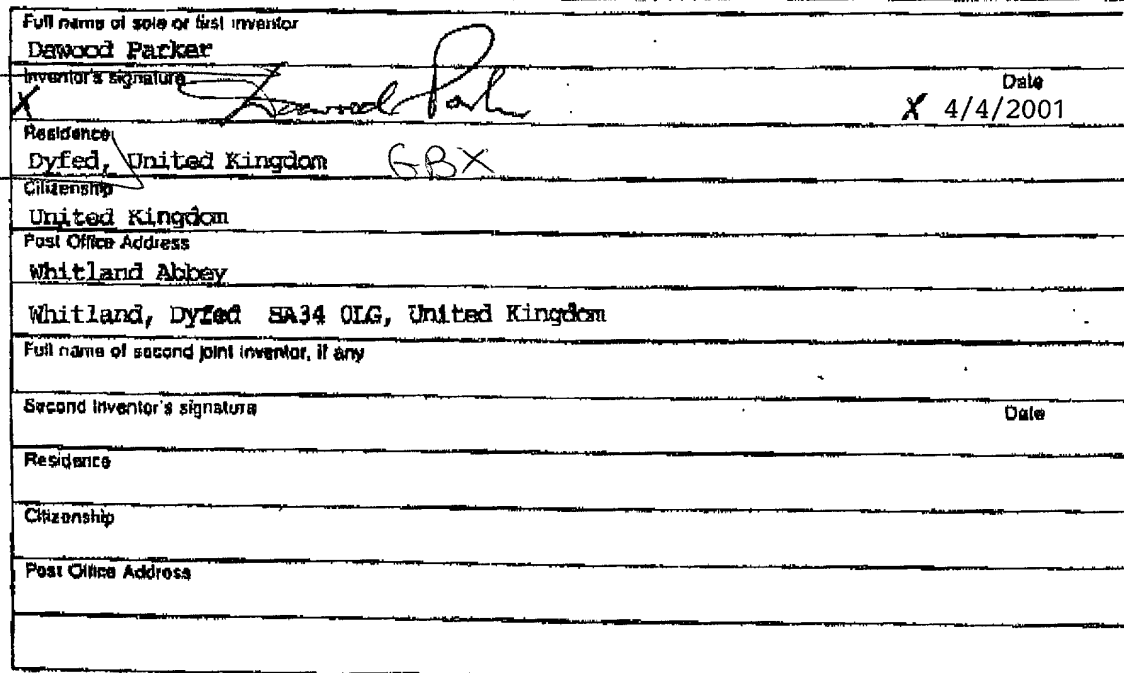 Full name of sole or first inventor
Dawood Parker
Inventor's signature Date
X Dawood Parker X 4/4/2001
Residence
Dyfed, United Kingdom GBX
Citizenship
United Kingdom
Post Office Address
Whitland Abbey
Whitland, Dyfed SA34 0LG, United Kingdom
Full name of second joint inventor, if any
Second Inventor's signature Date
Residence
Citizenship
Post Office Address